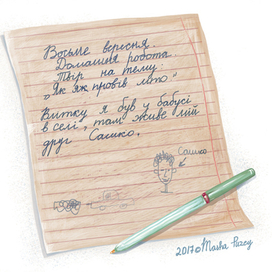 Восьме вересня
Домашня робота.
Твір на тему:
„Як я провів літо"
Влітку я був у бабусі
в селі, там живе мій
друг Сашко.
Сашко
2017 © Masha Pacey